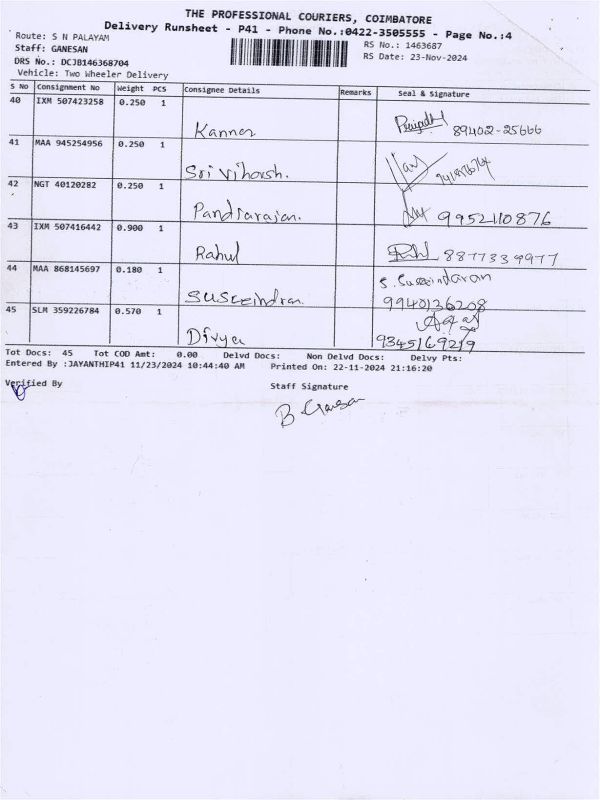 THE PROFESSIONAL COURIERS, COIMBATORE
Delivery Runsheet - P41 - Phone No.:0422-3505555 - Page No.:4
Route: S N PALAYAM
RS No.: 1463687
Staff: GANESAN
RS Date: 23-Nov-2024
DRS No.: DCJB146368704
Vehicle: Two Wheeler Delivery
S No Consignment No Weight PCS Consignee Details Remarks Seal & Signature
40 IXM 507423258 0.250 1
Kannan 89402-25666
41 MAA 945254956 0.250 1
Sri Vihoush.
42 NGT 40120282 0.250 1
Pandiarajan. 9952110876
43 IXM 507416442 0.900 1
Rahul 8877339977
44 MAA 868145697 0.180 1
S. Suseindaran
Suseeindran. 9940136208
45 SLM 359226784 0.570 1
Divya 9345169219
Tot Docs: 45 Tot COD Amt: 0.00 Delvd Docs: Non Delvd Docs: Delvy Pts:
Entered By :JAYANTHIP41 11/23/2024 10:44:40 AM Printed On: 22-11-2024 21:16:20
Verified By
Staff Signature
B. Ganesan